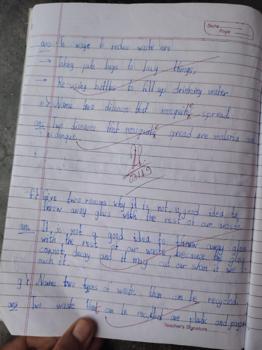 Date
Page
ans To ways to reduce waste are
→ Taking jute bags to buy things,
→ Re using bottles to fill up drinking water
Name two diseases that mosquito spread
ans Two diseases that mosquito spread are malaria and
dengue
Give two reasons why it is not a good idea to
throw away glass with the rest of our waste
ans It is not a good idea to throw away glass
with the rest of our waste because the glass
cannot decay and it may cut our skin if we
touch it.
Name two types of waste that can be recycled
ans Two waste that can be recycled are plastic and paper
Teacher's Signature